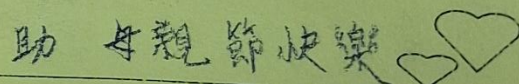 助 母親節快樂